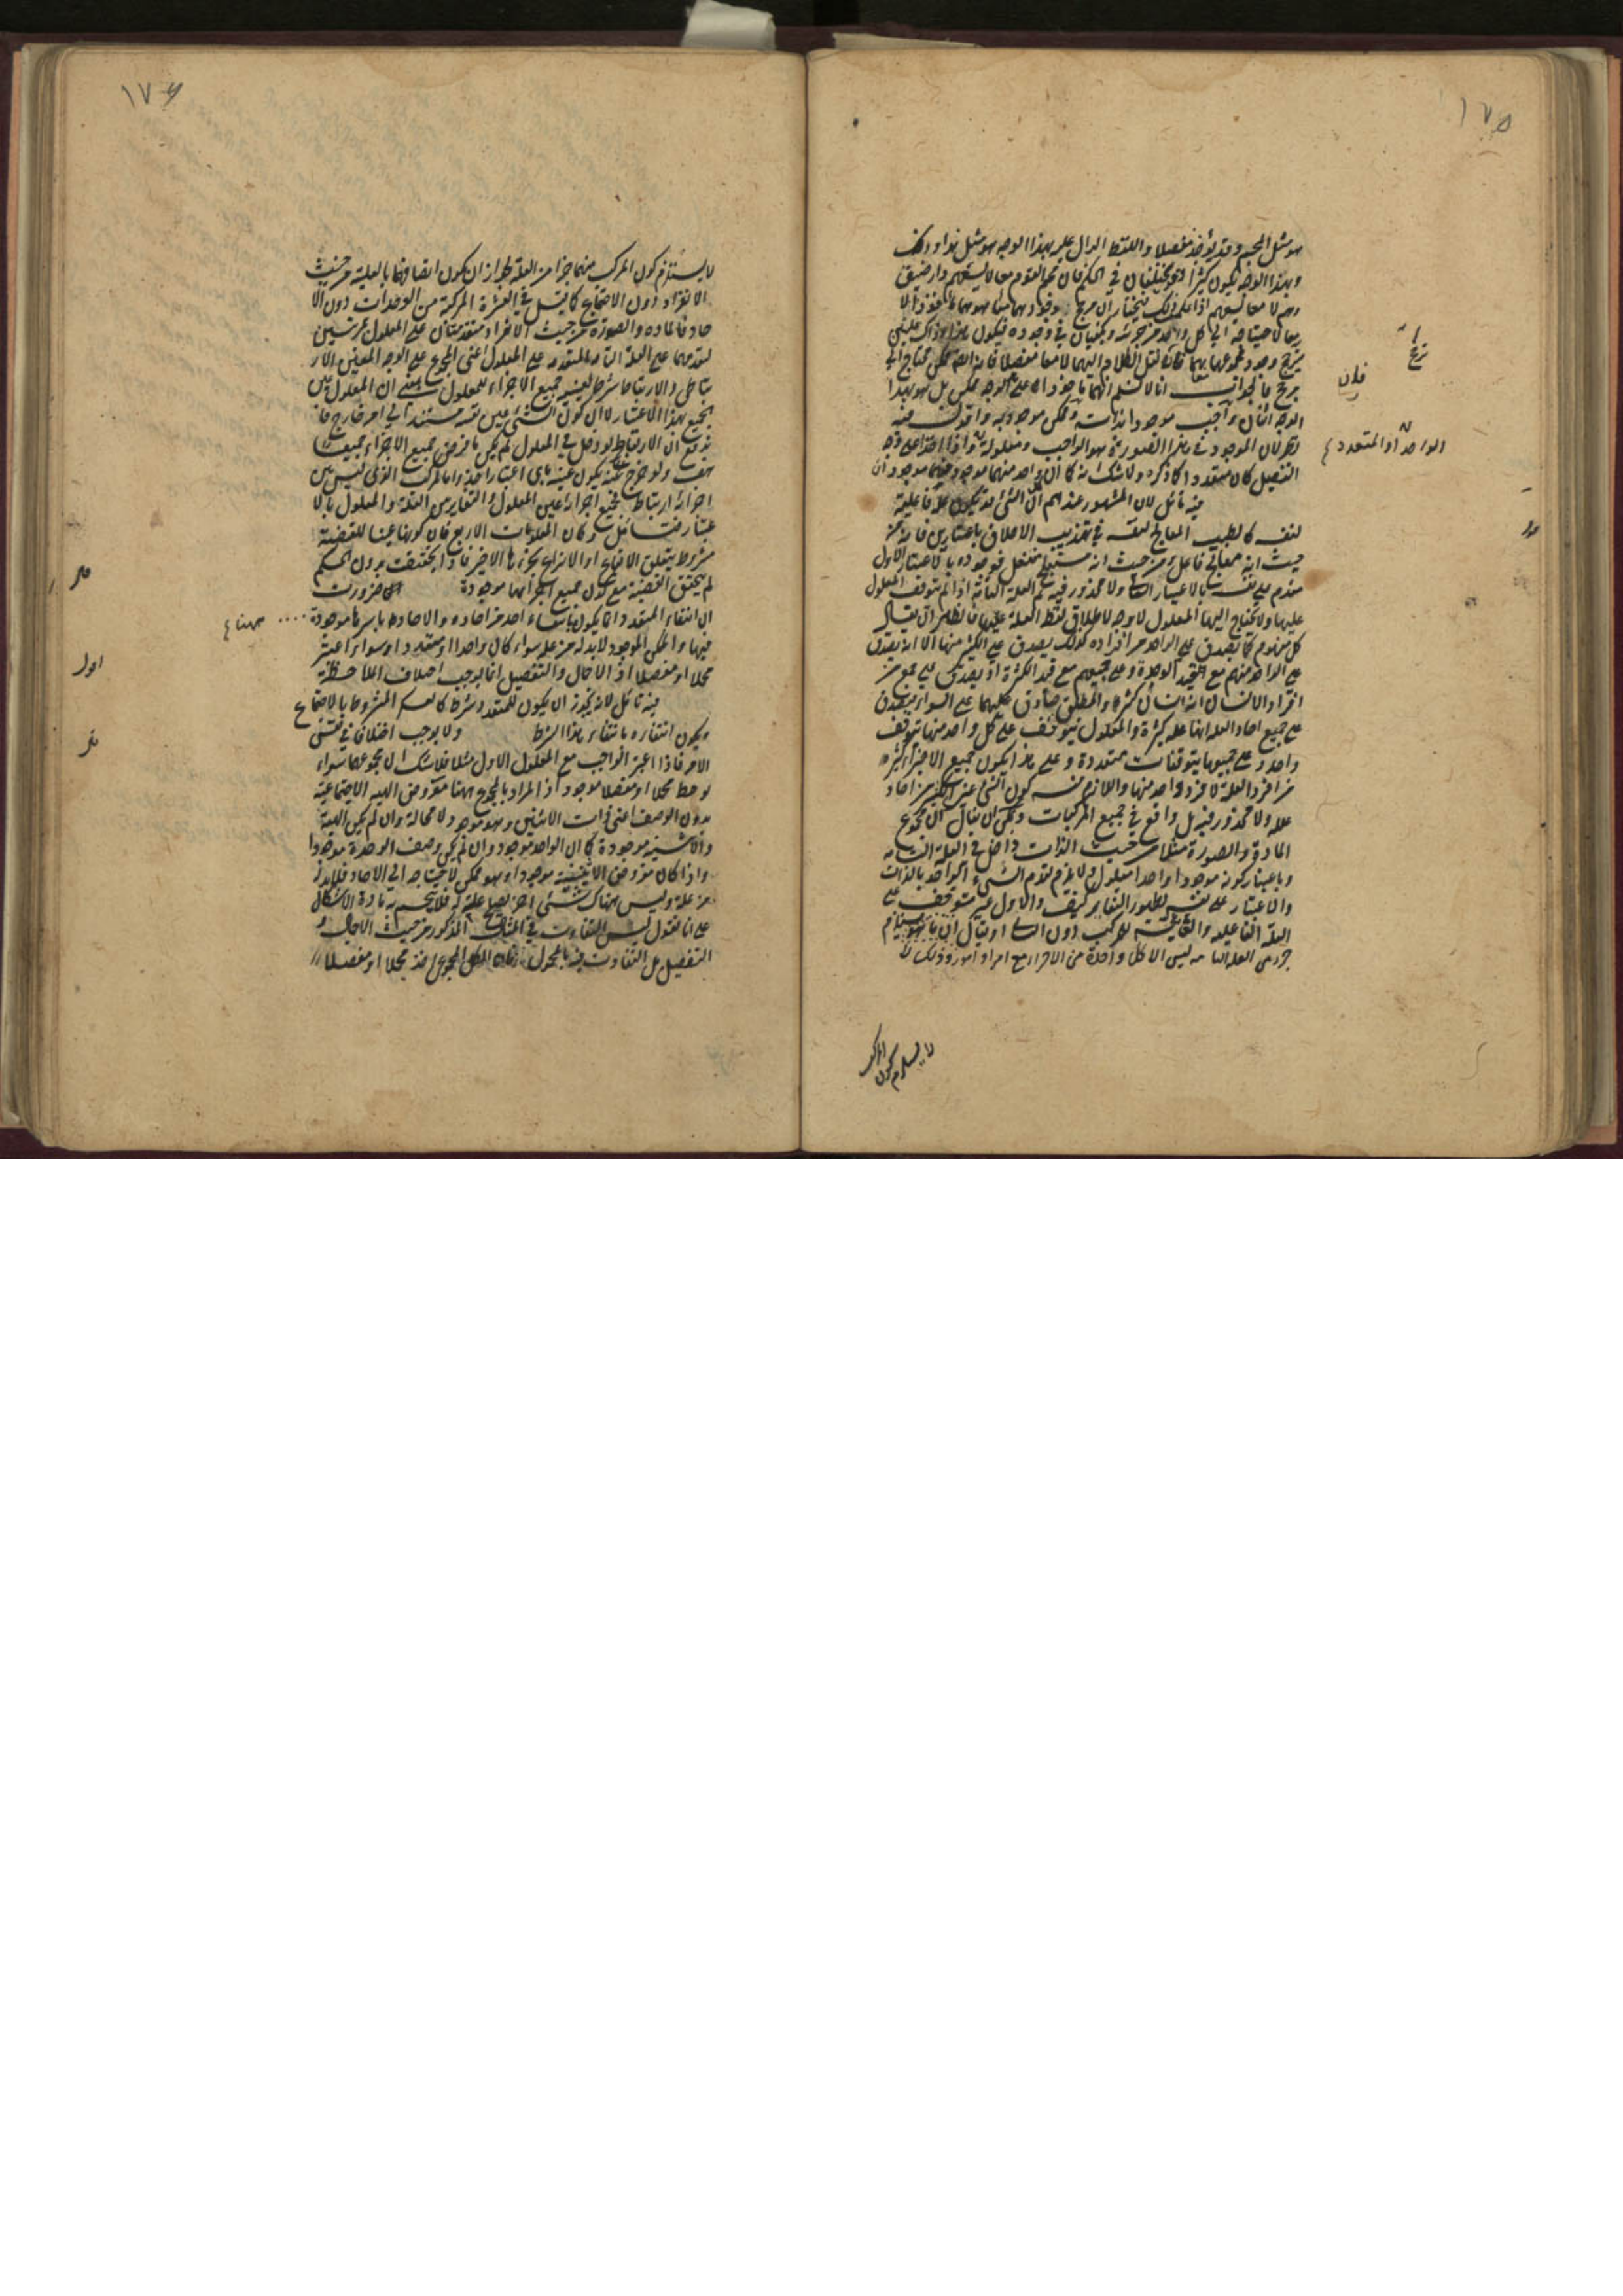 ١٧٥
هو مثل المجموع وقد يؤخذ مفصلا واللفظ الدال عليه بهذا الوجه هو مثل هذا وذاك
وبهذا الوجه يكون كثيرا وقد يختلفان في الحكم فان مجموع القوم معا لا يسعهم دار ضيق
وهم لا معا يسعهم اذا
ربما لاحتياجه الى كل واحد من جزئه ويكفيان في وجوده فيكون
يترجح وجود مجموعهما بهما فان نقل الكلام اليهما لا معا مفصلا فانه ايضا ممكن محتاج الى
مرجح فالجواب انا لا نسلم انهما مأخوذا على هذا الوجه ممكن بل هو بهذا
الوجه اثنان واجب موجود بذاته وممكن موجود به واقول فيه
نظر لان الموجود في هذا الصورة هو الواجب ومعلوله واذا اخذا على وجه
التفصيل كان متعددا كما ذكره ولا شك انه كما ان واحد منهما موجود فهما موجودان
فيه تأمل لان المشهور عندهم ان الشئ قد يكون علة فاعلية
لنفسه كالطبيب المعالج لنفسه في تهذيب الاخلاق باعتبارين فانه من
حيث انه معالج فاعل ومن حيث انه مستعلج منفعل فوجوده بالاعتبار الاول
مقدم على نفسه بالاعتبار الثاني ولا محذور فيه ثم العلة التامة اذا لم يتوقف المعلول
عليها ولا يحتاج اليها المعلول لا وجه لاطلاق لفظ العلة عليها فالظاهر ان يقال
كل مفهوم كما يصدق على الواحد من افراده كذلك يصدق على الكثير منها الا انه يصدق
على الواحد منهم مع قيد الوحدة وعلى جميعهم مع قيد الكثرة اذ يصدق على جمع من
افراد الانسان انه انسان كثير والمطلق صادق عليهما على السواء فيصدق
على جميع احاد العلة انها علة كثيرة والمعلول يتوقف على كل واحد منها بتوقف
واحد وعلى جميعها بتوقفات متعددة وعلى هذا يكون جميع الاجزاء كثيرة
من افراد العلة لا فرد واحد منها واللازم منه كون الشئ عين الكثير من احاد
علله ولا محذور فيه بل واقع في جميع المركبات ويمكن ان يقال ان مجموع
المادة والصورة مثلا من حيث الذات داخل في العلة التامة
وباعتبار كونه موجودا واحدا معلول ولا يلزم تقدم الشئ الواحد بالذات
والاعتبار على نفسه لظهور التغاير كيف والاول غير متوقف على
العلة الفاعلية والغائية للمركب دون الثاني او يقال ان
جزءي العلة التامة ليس الا كل واحدة من الاجزاء مع امراد امور وذلك لا
ترجح
فان
الواحد او المتعدد
لا يستلزم كون المركب
١٧٦
لا يستلزم كون المركب منهما جزءا من العلة لجواز ان يكون اتصافهما بالعلية من حيث
الانفراد دون الاجتماع كما قيل في العشرة المركبة من الوحدات دون الا
حاد فالمادة والصورة من حيث الانفراد متقدمتان على المعلول مرتبتين
لتقدمهما على العلة التامة المتقدمة على المعلول اعنى المجموع على الوجه المعين الار
تباطي والارتباط شرط لعينية جميع الاجزاء للمعلول بمعنى ان المعلول عين
الجميع بهذا الاعتبار لا ان كون الشئ عين نفسه مستند الى امر خارج فا
ندفع ان الارتباط لو دخل في المعلول لم يكن ما فرض جميع الاجزاء جميعا
هف ولو خرج عنه يكون عينه باى اعتبار اخذ واما المركب الذى ليس بين
اجزائه ارتباط فجميع اجزائه عين المعلول والتغاير بين العلة والمعلول بالا
عتبار فتأمل وكان المعلومات الاربع فان كونها عينا للقضية
مشروط بتعلق الايقاع او الانتزاع بجزءها الاخير فاذا تحققت بدون الحكم
لم يتحقق القضية مع كون جميع اجزائها موجودة ضرورت
ان انتفاء المتعدد انما يكون بانتفاء احد من احاده والاحاد باسرها موجودة
فيها والممكن الموجود لابد له من علة سواء كان واحدا او متعددا وسواء اعتبر
مجملا او مفصلا اذ الاجمال والتفصيل انما يوجب اختلاف الملاحظة
فيه تأمل لانه يجوز ان يكون للمتعدد شرط كالعلم المشروط بالاجتماع
فيكون انتفاؤه بانتفاء هذا الشرط ولا يوجب اختلافا في نفس
الامر فاذا اعتبر الواجب مع المعلول الاول مثلا فلا شك ان مجموعهما سواء
لوحظ مجملا او مفصلا موجود اذ المراد بالمجموع ههنا معروض الهيئة الاجتماعية
بدون الوصف اعنى ذات الاثنين وهو موجود لا محالة وان لم يكن الهيئة
والاثنينية موجودة كما ان الواحد موجود وان لم يكن وصف الوحدة موجودا
واذا كان معروض الاثنينية موجودا وهو ممكن لاحتياجه الى الاحاد فلابد له
من علة وليس هناك شئ اخر يصلح علة له فلا ينحسم به مادة الاشكال
على انا نقول ليس التفاوت في المثال المذكور من حيث الاجمال و
التفصيل بل التفاوت فيه بالمحمول فان الكل المجموعى اخذ مجملا او مفصلا
ههنا
اول